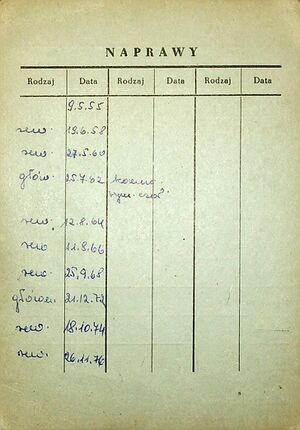 NAPRAWY
Rodzaj Data Rodzaj Data Rodzaj Data
9.5.55
rew. 19.6.58
rew. 27.5.60
głów. 25.7.62
rew. 12.8.64
rew 11.8.66
rew. 25.9.68
główn. 21.12.72
rew. 18.10.74
rew. 26.11.76